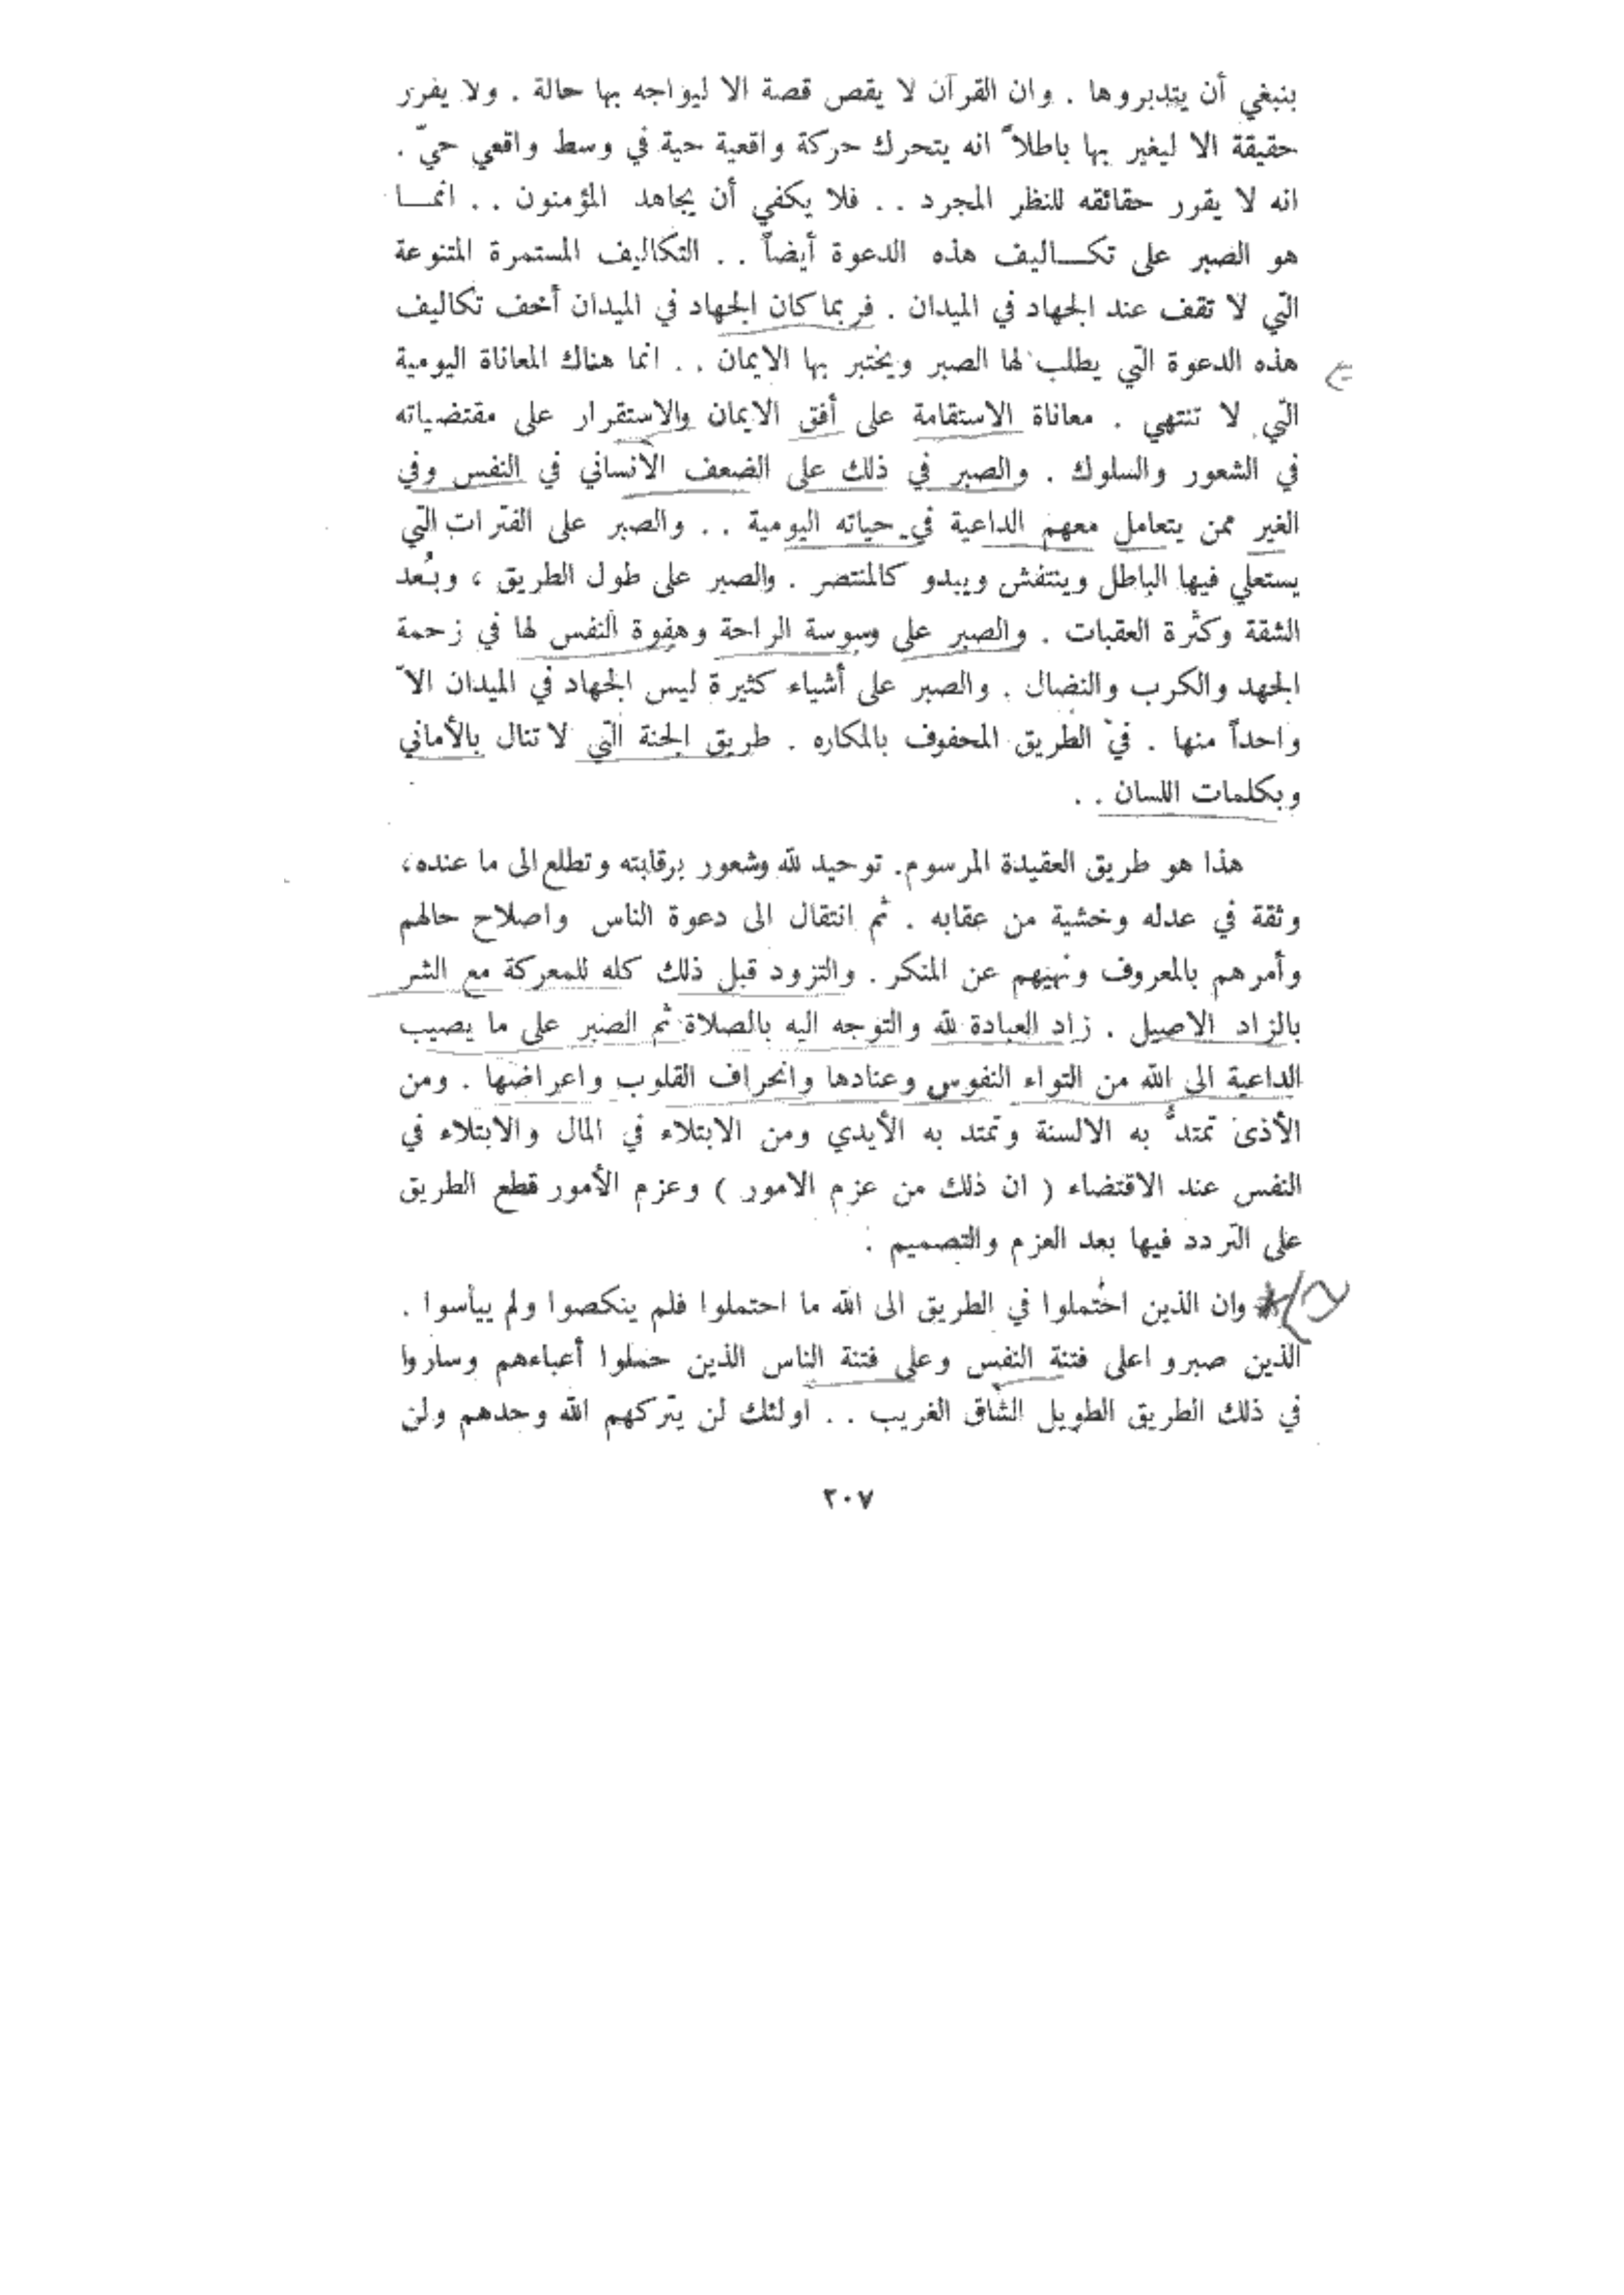 ينبغي أن يتدبروها . وان القرآن لا يقص قصة الا ليواجه بها حالة . ولا يقرر
حقيقة الا ليغير بها باطلاً انه يتحرك حركة واقعية حية في وسط واقعي حيّ .
انه لا يقرر حقائقه للنظر المجرد . . فلا يكفي أن يجاهد المؤمنون . . انمـــا
هو الصبر على تكـــاليف هذه الدعوة أيضاً . . التكاليف المستمرة المتنوعة
التي لا تقف عند الجهاد في الميدان . فربما كان الجهاد في الميدان أخف تكاليف
هذه الدعوة التي يطلب لها الصبر ويختبر بها الايمان . . انما هناك المعاناة اليومية
التي لا تنتهي . معاناة الاستقامة على أفق الايمان والاستقرار على مقتضياته
في الشعور والسلوك . والصبر في ذلك على الضعف الانساني في النفس وفي
الغير ممن يتعامل معهم الداعية في حياته اليومية . . والصبر على الفترات التي
يستعلي فيها الباطل وينتفش ويبدو كالمنتصر . والصبر على طول الطريق ، وبُعد
الشقة وكثرة العقبات . والصبر على وسوسة الراحة وهفوة النفس لها في زحمة
الجهد والكرب والنضال . والصبر على أشياء كثيرة ليس الجهاد في الميدان الاّ
واحداً منها . في الطريق المحفوف بالمكاره . طريق الجنة التي لا تنال بالأماني
وبكلمات اللسان . .
هذا هو طريق العقيدة المرسوم. توحيد لله وشعور برقابته وتطلع الى ما عنده،
وثقة في عدله وخشية من عقابه . ثم انتقال الى دعوة الناس واصلاح حالهم
وأمرهم بالمعروف ونهيهم عن المنكر . والتزود قبل ذلك كله للمعركة مع الشر
بالزاد الاصيل . زاد العبادة لله والتوجه اليه بالصلاة ثم الصبر على ما يصيب
الداعية الى الله من التواء النفوس وعنادها وانحراف القلوب واعراضها . ومن
الأذى تمتدُّ به الالسنة وتمتد به الأيدي ومن الابتلاء في المال والابتلاء في
النفس عند الاقتضاء ( ان ذلك من عزم الامور ) وعزم الأمور قطع الطريق
على التردد فيها بعد العزم والتصميم .
وان الذين احتملوا في الطريق الى الله ما احتملوا فلم ينكصوا ولم ييأسوا .
الذين صبرو اعلى فتنة النفس وعلى فتنة الناس الذين حملوا أعباءهم وساروا
في ذلك الطريق الطويل الشاق الغريب . . اولئك لن يتركهم الله وحدهم ولن
٢٠٧